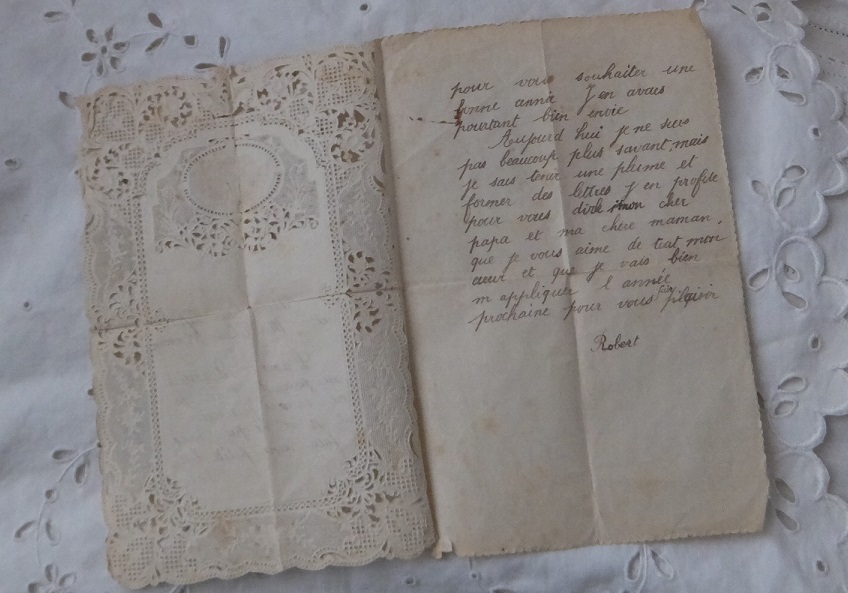 pour vous souhaiter une
bonne année J en avais
pourtant bien envie
Aujourd hui je ne suis
pas beaucoup plus savant mais
je sais tenir une plume et
former des lettres J en profite
pour vous dire mon cher
papa et ma chère maman,
que je vous aime de tout mon
cœur et que je vais bien
m appliquer l année
prochaine pour vous faire plaisir
Robert